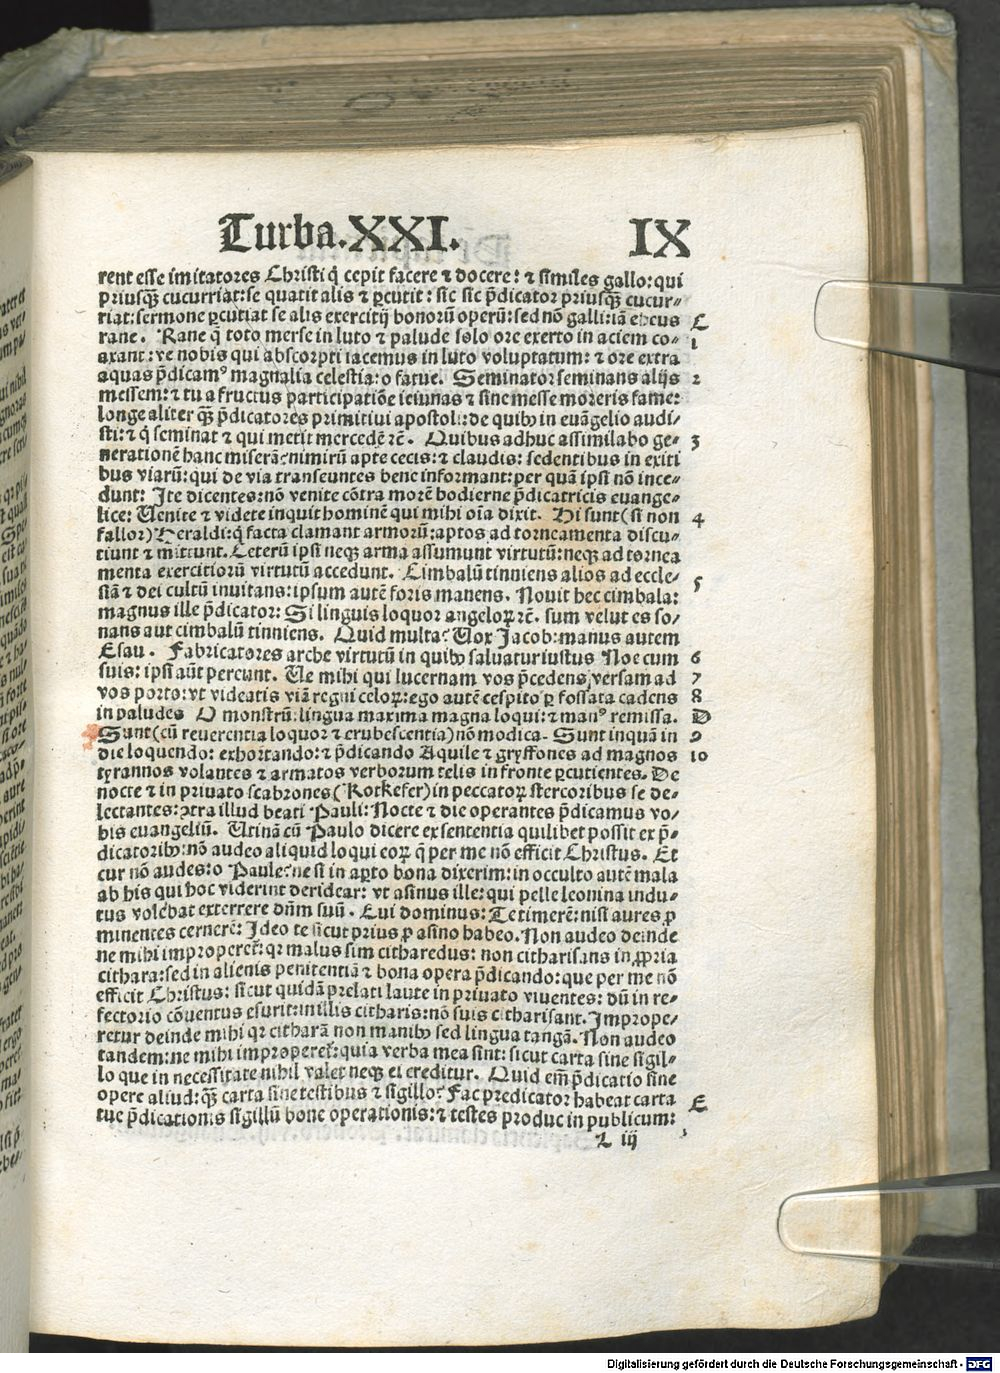 Turba.XXI. IX
rent esse imitatores Christi q̃ cepit facere ⁊ docere: ⁊ similes gallo: qui
priusq̃ cucurriat: se quatit alis ⁊ ꝑcutit: sic sic p̃dicator priusq̃ cucur⸗
riat: sermone ꝑcutiat se alis exercitij bonorũ operũ: sed nõ galli: iã C
rane. Rane q̃ toto merse in luto ⁊ palude solo ore exerto in aciem co⸗ 1
axant: ve nobis qui abscorpti iacemus in luto voluptatum: ⁊ ore extra
aquas p̃dicamꝰ magnalia celestia: o fatue. Seminator seminans alijs 2
messem: ⁊ tu a fructus participatiõe ieiunas ⁊ sine messe moreris fame:
longe aliter q̃ p̃dicatores primitiui apostoli: de quibꝰ in euãgelio audi⸗
sti: ⁊ q̃ seminat ⁊ qui metit mercedẽ ⁊c̃. Quibus adhuc assimilabo ge⸗ 3
nerationẽ hanc miserã: nimirũ apte cecis: ⁊ claudis: sedentibus in exiti
bus viarũ: qui de via transeuntes bene informant: per quã ipsi nõ ince⸗
dunt: Ite dicentes: nõ venite cõtra morẽ hodierne p̃dicatricis euange⸗
lice: Uenite ⁊ videte inquit hominẽ qui mihi oĩa dixit. Hi sunt (si non 4
fallor) Heraldi: q̃ facta clamant armorũ: aptos ad torneamenta discu⸗
tiunt ⁊ mittunt. Ceterũ ipsi neq̃ arma assumunt virtutũ: neq̃ ad tornea
menta exercitiorũ virtutũ accedunt. Cimbalũ tinniens alios ad eccle⸗ 5
siã ⁊ dei cultũ inuitans: ipsum autẽ foris manens. Nouit hec cimbala:
magnus ille p̃dicator: Si linguis loquor angeloꝝ ⁊c̃. sum velut es so⸗
nans aut cimbalũ tinniens. Quid multa? Uox Jacob: manus autem
Esau. Fabricatores arche virtutũ in quibꝰ saluatur iustus Noe cum 6
suis: ipsi aũt pereunt. Ue mihi qui lucernam vos p̃cedens, versam ad 7
vos porto: vt videatis viã regni celoꝝ: ego autẽ cespito ꝑ fossata cadens 8
in paludes O monstrũ: lingua maxima magna loqui: ⁊ manꝰ remissa. D
Sunt (cũ reuerentia loquor ⁊ erubescentia) nõ modica. Sunt inquã in 9
die loquendo: exhortando: ⁊ p̃dicando Aquile ⁊ gryffones ad magnos 10
tyrannos volantes ⁊ armatos verborum telis in fronte ꝑcutientes. De
nocte ⁊ in priuato scabrones (Rotkefer) in peccatoꝝ stercoribus se de⸗
lectantes: ꝯtra illud beati Pauli: Nocte ⁊ die operantes p̃dicamus vo⸗
bis euangeliũ. Utinã cũ Paulo dicere ex sententia quilibet possit ex p̃⸗
dicatoribꝰ: nõ audeo aliquid loqui eoꝝ q̃ per me nõ efficit Christus. Et
cur nõ audes: o Paule? ne si in aꝑto bona dixerim: in occulto autẽ mala
ab his qui hoc viderint deridear: vt asinus ille: qui pelle leonina indu⸗
tus volebat exterrere dñm suũ. Cui dominus: Te timerẽ: nisi aures ꝓ
minentes cernerẽ: Ideo te sicut prius ꝓ asino habeo. Non audeo deinde
ne mihi improperet̃: qꝛ malus sim citharedus: non citharisans in ꝓpria
cithara: sed in alienis penitentiã ⁊ bona opera p̃dicando: que per me nõ
efficit Christus: sicut quidã prelati laute in priuato viuentes: dũ in re⸗
fectorio cõuentus esurit: in illis citharis: nõ suis citharisant. Imprope⸗
retur deinde mihi qꝛ citharã non manibꝰ sed lingua tangã. Non audeo
tandem: ne mihi improperet̃: quia verba mea sint: sicut carta sine sigil⸗
lo que in necessitate nihil valet neq̃ ei creditur. Quid em̃ p̃dicatio sine
opere aliud: q̃ carta sine testibus ⁊ sigillo? Fac predicator habeat carta
tue p̃dicationis sigillũ bone operationis: ⁊ testes produc in publicum: E
L iij
Digitalisierung gefördert durch die Deutsche Forschungsgemeinschaft - DFG